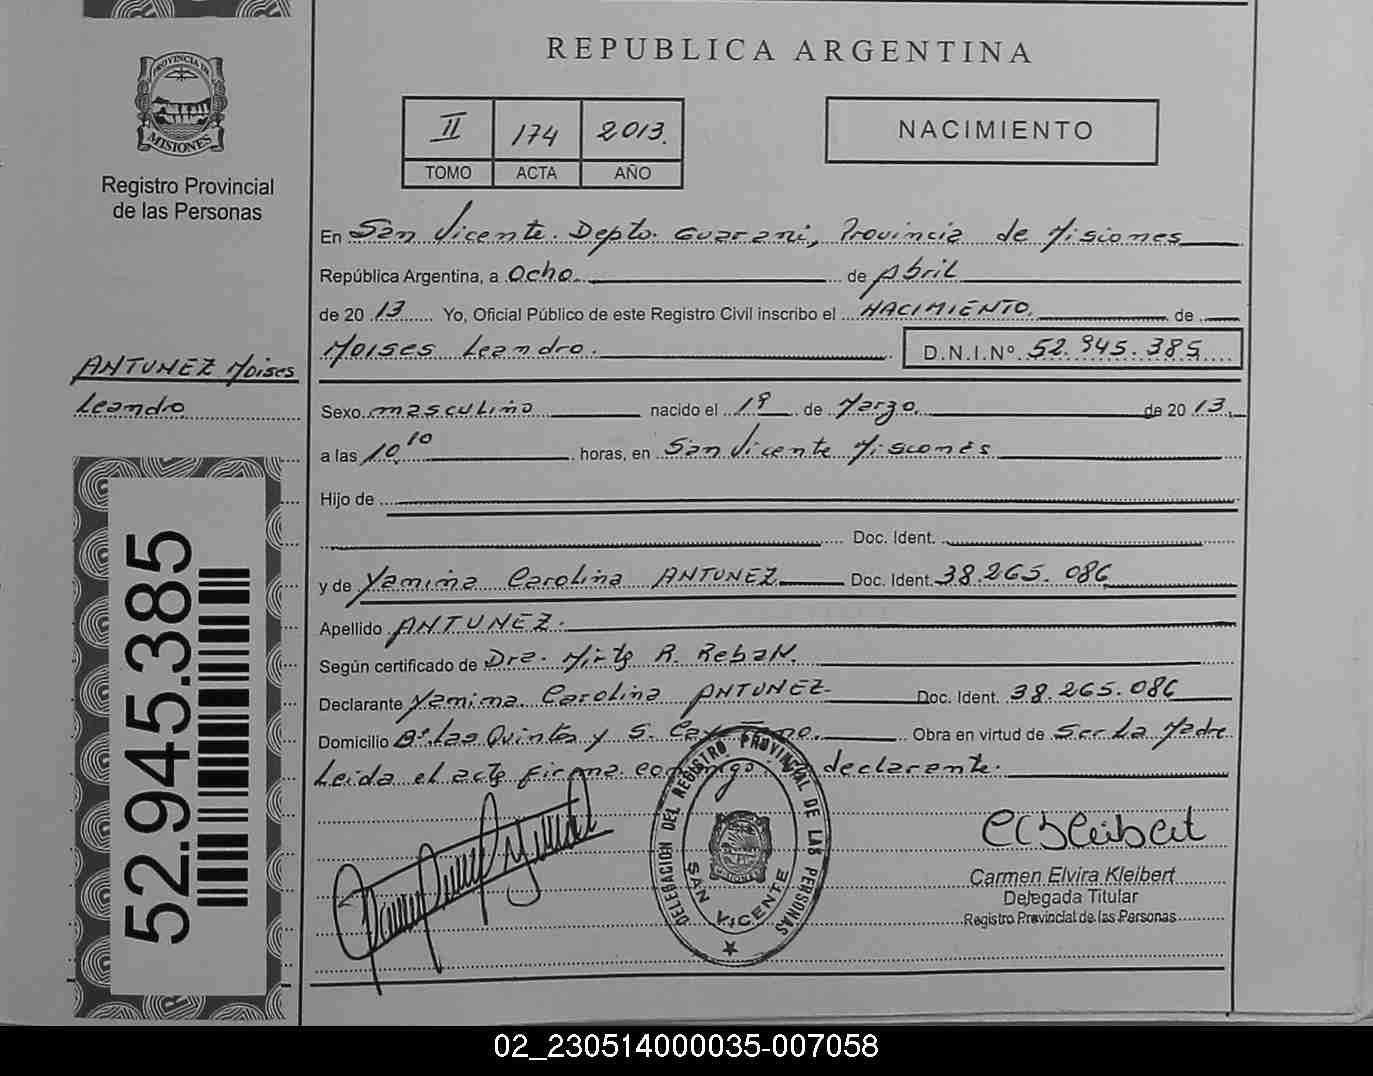 REPUBLICA ARGENTINA
PROVINCIA DE
MISIONES
Registro Provincial
de las Personas
II 174 2013.
TOMO ACTA AÑO
NACIMIENTO
En San Vicente. Depto. Guarani, Provincia de Misiones
República Argentina, a Ocho de Abril
de 20 13 Yo, Oficial Público de este Registro Civil inscribo el NACIMIENTO. de
Moises Leandro. D.N.I.Nº 52.945.385
ANTUNEZ Moises
Leandro
Sexo masculino nacido el 19 de Marzo de 20 13.
a las 10,10 horas, en San Vicente Misiones
Hijo de
Doc. Ident.
y de Yamina Carolina ANTUNEZ Doc. Ident. 38.265.086
Apellido ANTUNEZ.
Según certificado de Dra. Mirta R.
Declarante Yamina Carolina ANTUNEZ Doc. Ident. 38.265.086
Domicilio Bº. Las Quintas y S. Cayetano. Obra en virtud de Ser La Madre
Leida el acta firma conmigo declarante.
52.945.385
DELEGACION DEL REGISTRO PROVINCIAL DE LAS PERSONAS
MISIONES
SAN VICENTE
Carmen Elvira Kleibert
Delegada Titular
Registro Provincial de las Personas
02_230514000035-007058